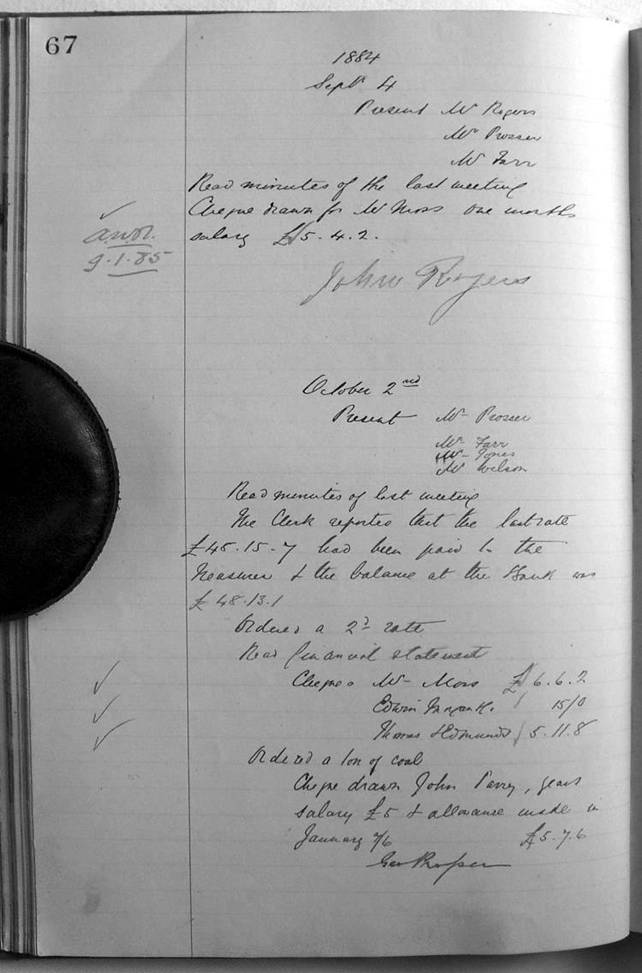 67
1884
Sept 4
Present Mr Rogers
Mr Prosser
Mr Farr
Read minutes of the last meeting
Cheque drawn for Mr Moss one months
salary £5.4.2.
9.1.85
John Rogers
October 2nd
Present Mr Prosser
Mr Farr
Mr Jones
Mr Wilson
Read minutes of last meeting
The Clerk reported that the last rate
£45.15.7 had been paid to the
Treasurer & the balance at the Bank was
£48.13.1
Ordered a 2d rate
Read financial statement
Cheques Mr Moss £6.6.2
Edwin 15/0
Thomas Edmunds 5.11.8
Ordered a ton of coal
Cheque drawn John Parry, years
salary £5 & allowance made in
January 7/6 £5.7.6
Geo Prosser